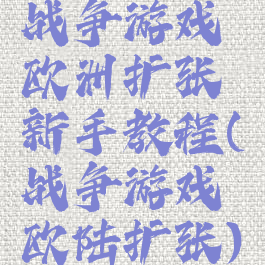 战争游戏
欧洲扩张
新手教程(
战争游戏
欧陆扩张)